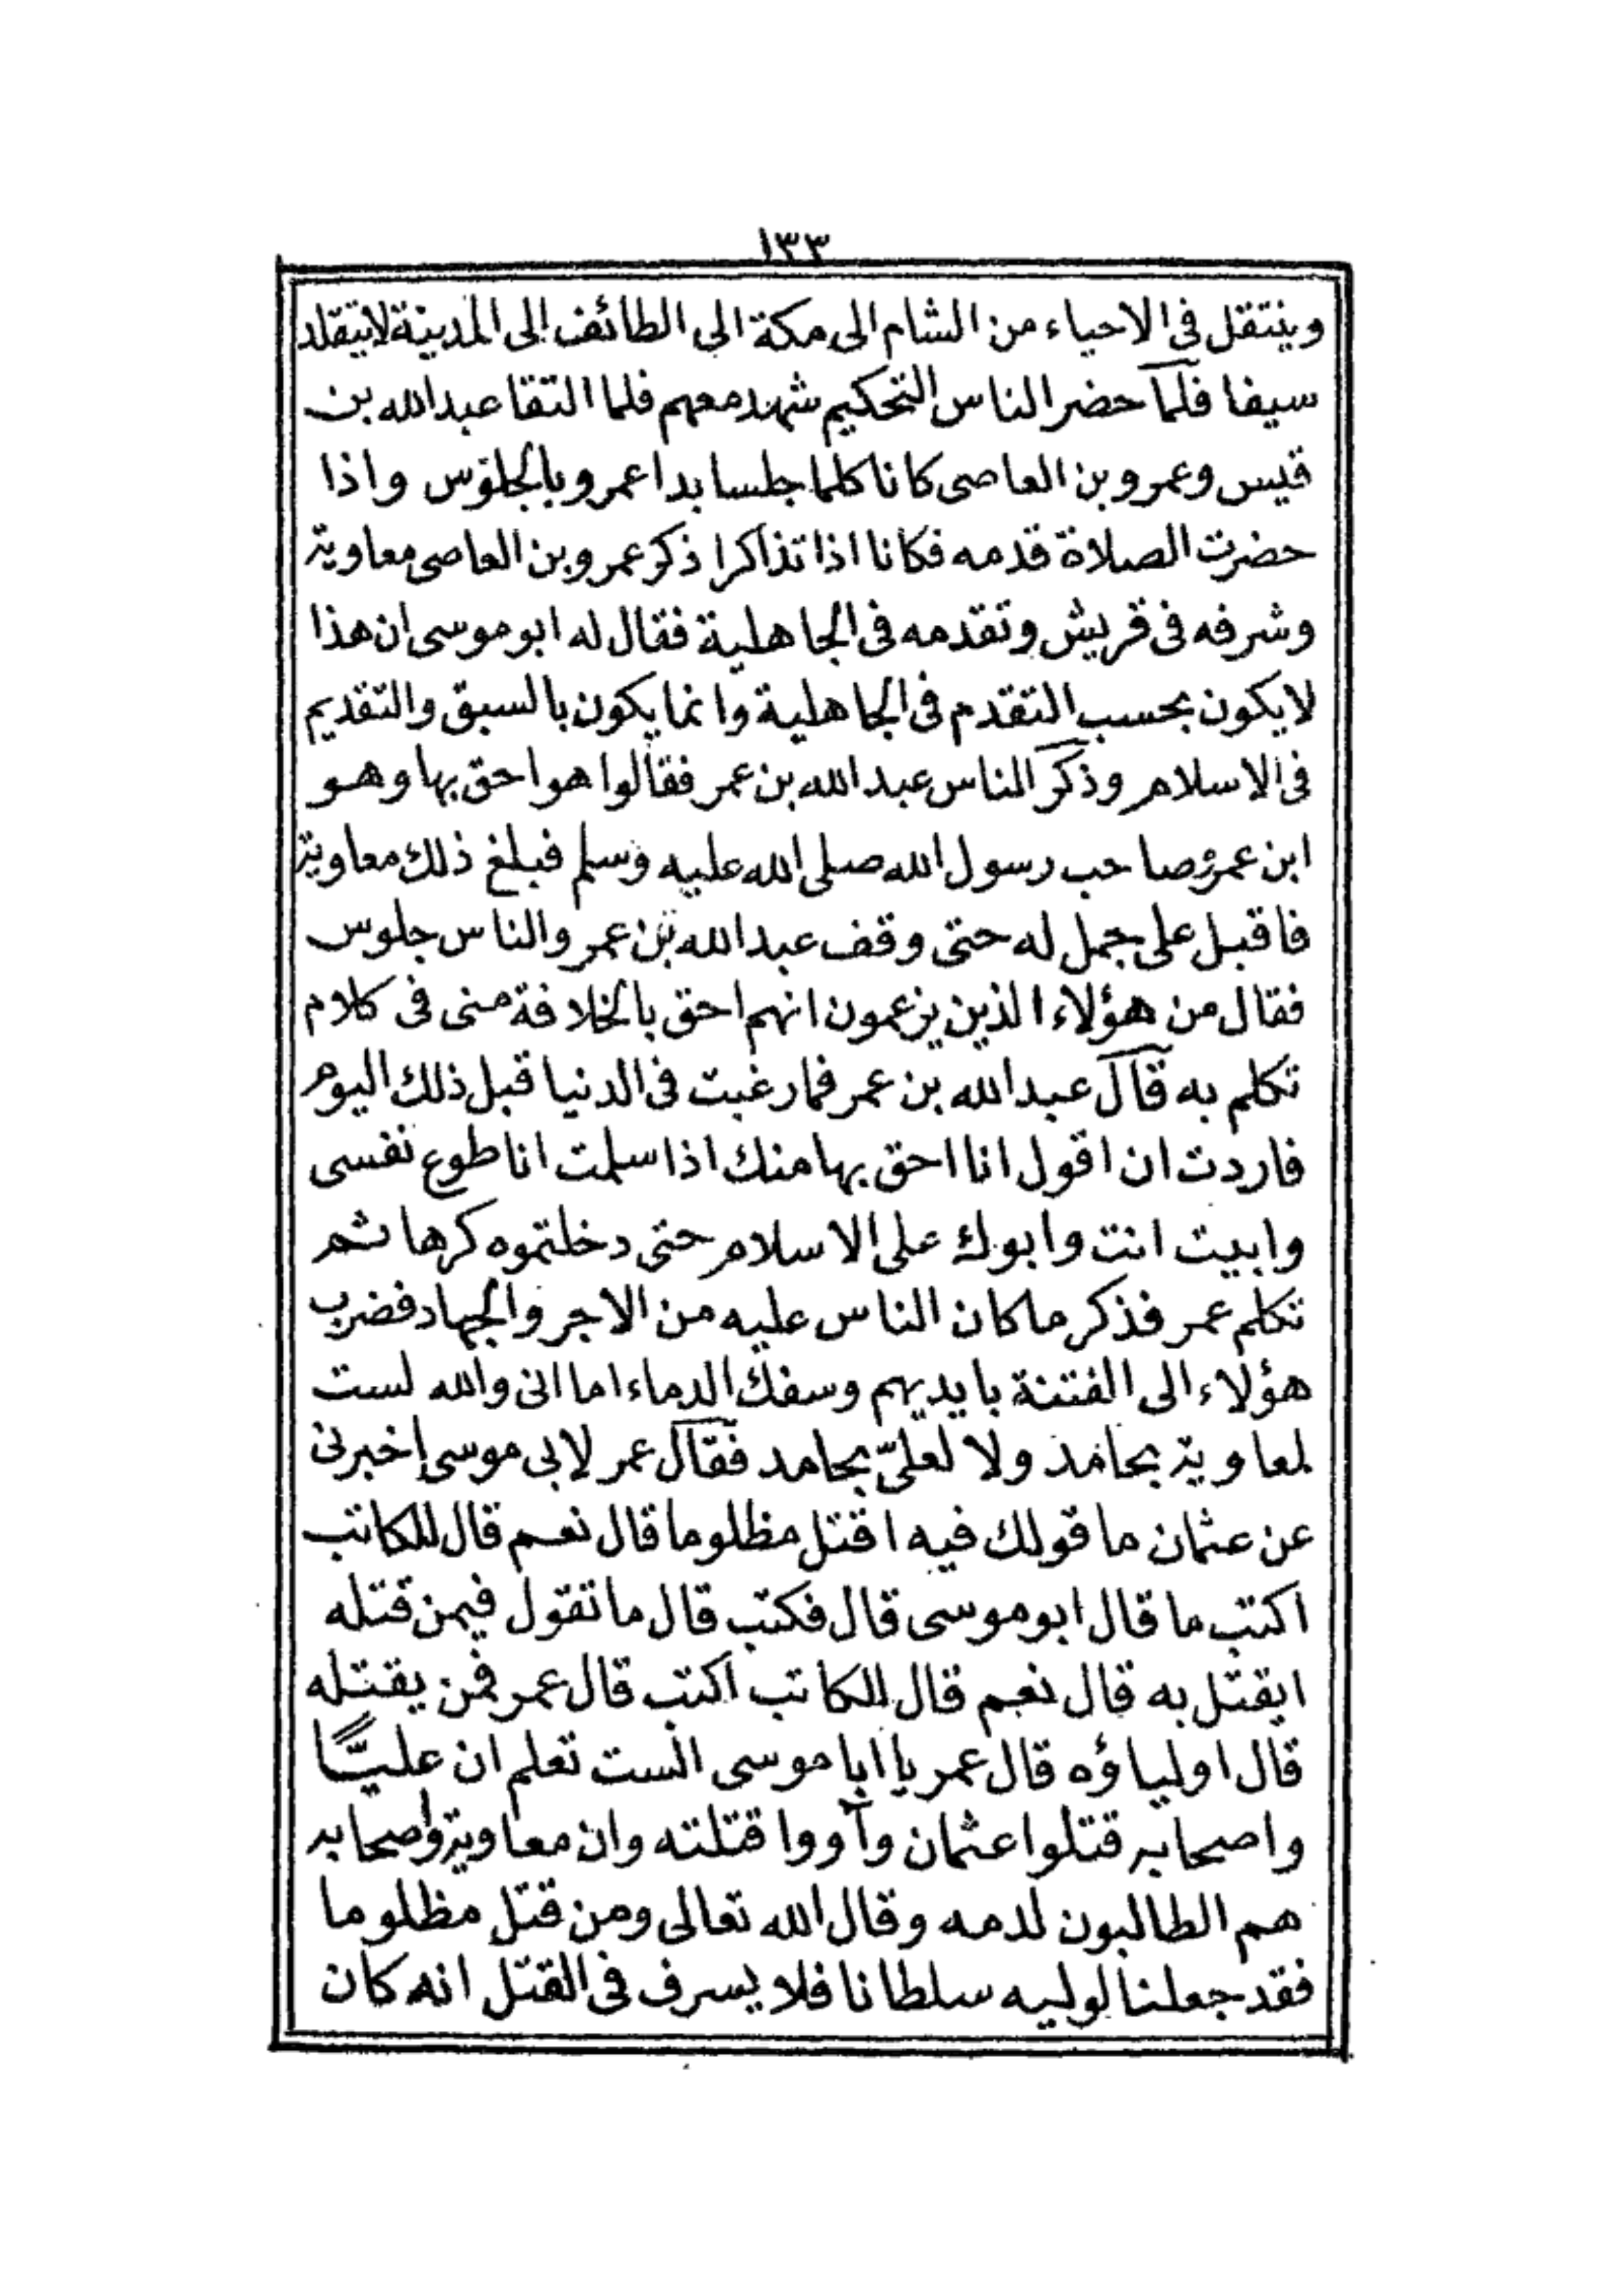 ١٣٣
وينتقل في الاحياء من الشام الى مكة الى الطائف الى المدينة لايتقلد
سيفا فلما حضر الناس التحكيم شهد معهم فلما التقا عبدالله بن
قيس وعمرو بن العاصى كانا كلما جلسا بدا عمرو بالجلوس واذا
حضرت الصلاة قدمه فكانا اذا تذاكرا ذكر عمرو بن العاصى معاوية
وشرفه في قريش وتقدمه في الجاهلية فقال له ابو موسى ان هذا
لايكون بحسب التقدم في الجاهلية وانما يكون بالسبق والتقديم
في الاسلام وذكر الناس عبد الله بن عمر فقالوا هو احق بها وهو
ابن عمر وصاحب رسول الله صلى الله عليه وسلم فبلغ ذلك معاوية
فاقبل على جمل له حتى وقف عبد الله بن عمر والناس جلوس
فقال من هؤلاء الذين يزعمون انهم احق بالخلافة منى في كلام
تكلم به قال عبدالله بن عمر فما رغبت في الدنيا قبل ذلك اليوم
فاردت ان اقول انا احق بها منك اذا سلمت انا طوع نفسى
وابيت انت وابوك على الاسلام حتى دخلتموه كرها ثم
تكلم عمر فذكر ما كان الناس عليه من الاجر والجهاد فضرب
هؤلاء الى الفتنة بايديهم وسفك الدماء اما انى والله لست
لمعاوية بحامد ولا لعلىّ بحامد فقال عمر لابى موسى إخبرنى
عن عثمان ما قولك فيه اقتل مظلوما قال نعم قال للكاتب
اكتب ما قال ابو موسى قال فكتب قال ما تقول فيمن قتله
ايقتل به قال نعم قال للكاتب اكتب قال عمر فمن يقتله
قال اولياؤه قال عمر يا ابا موسى الست تعلم ان عليًّا
واصحابه قتلوا عثمان وآووا قتلته وان معاوية واصحابه
هم الطالبون لدمه وقال الله تعالى ومن قتل مظلوما
فقد جعلنا لوليه سلطانا فلا يسرف في القتل انه كان